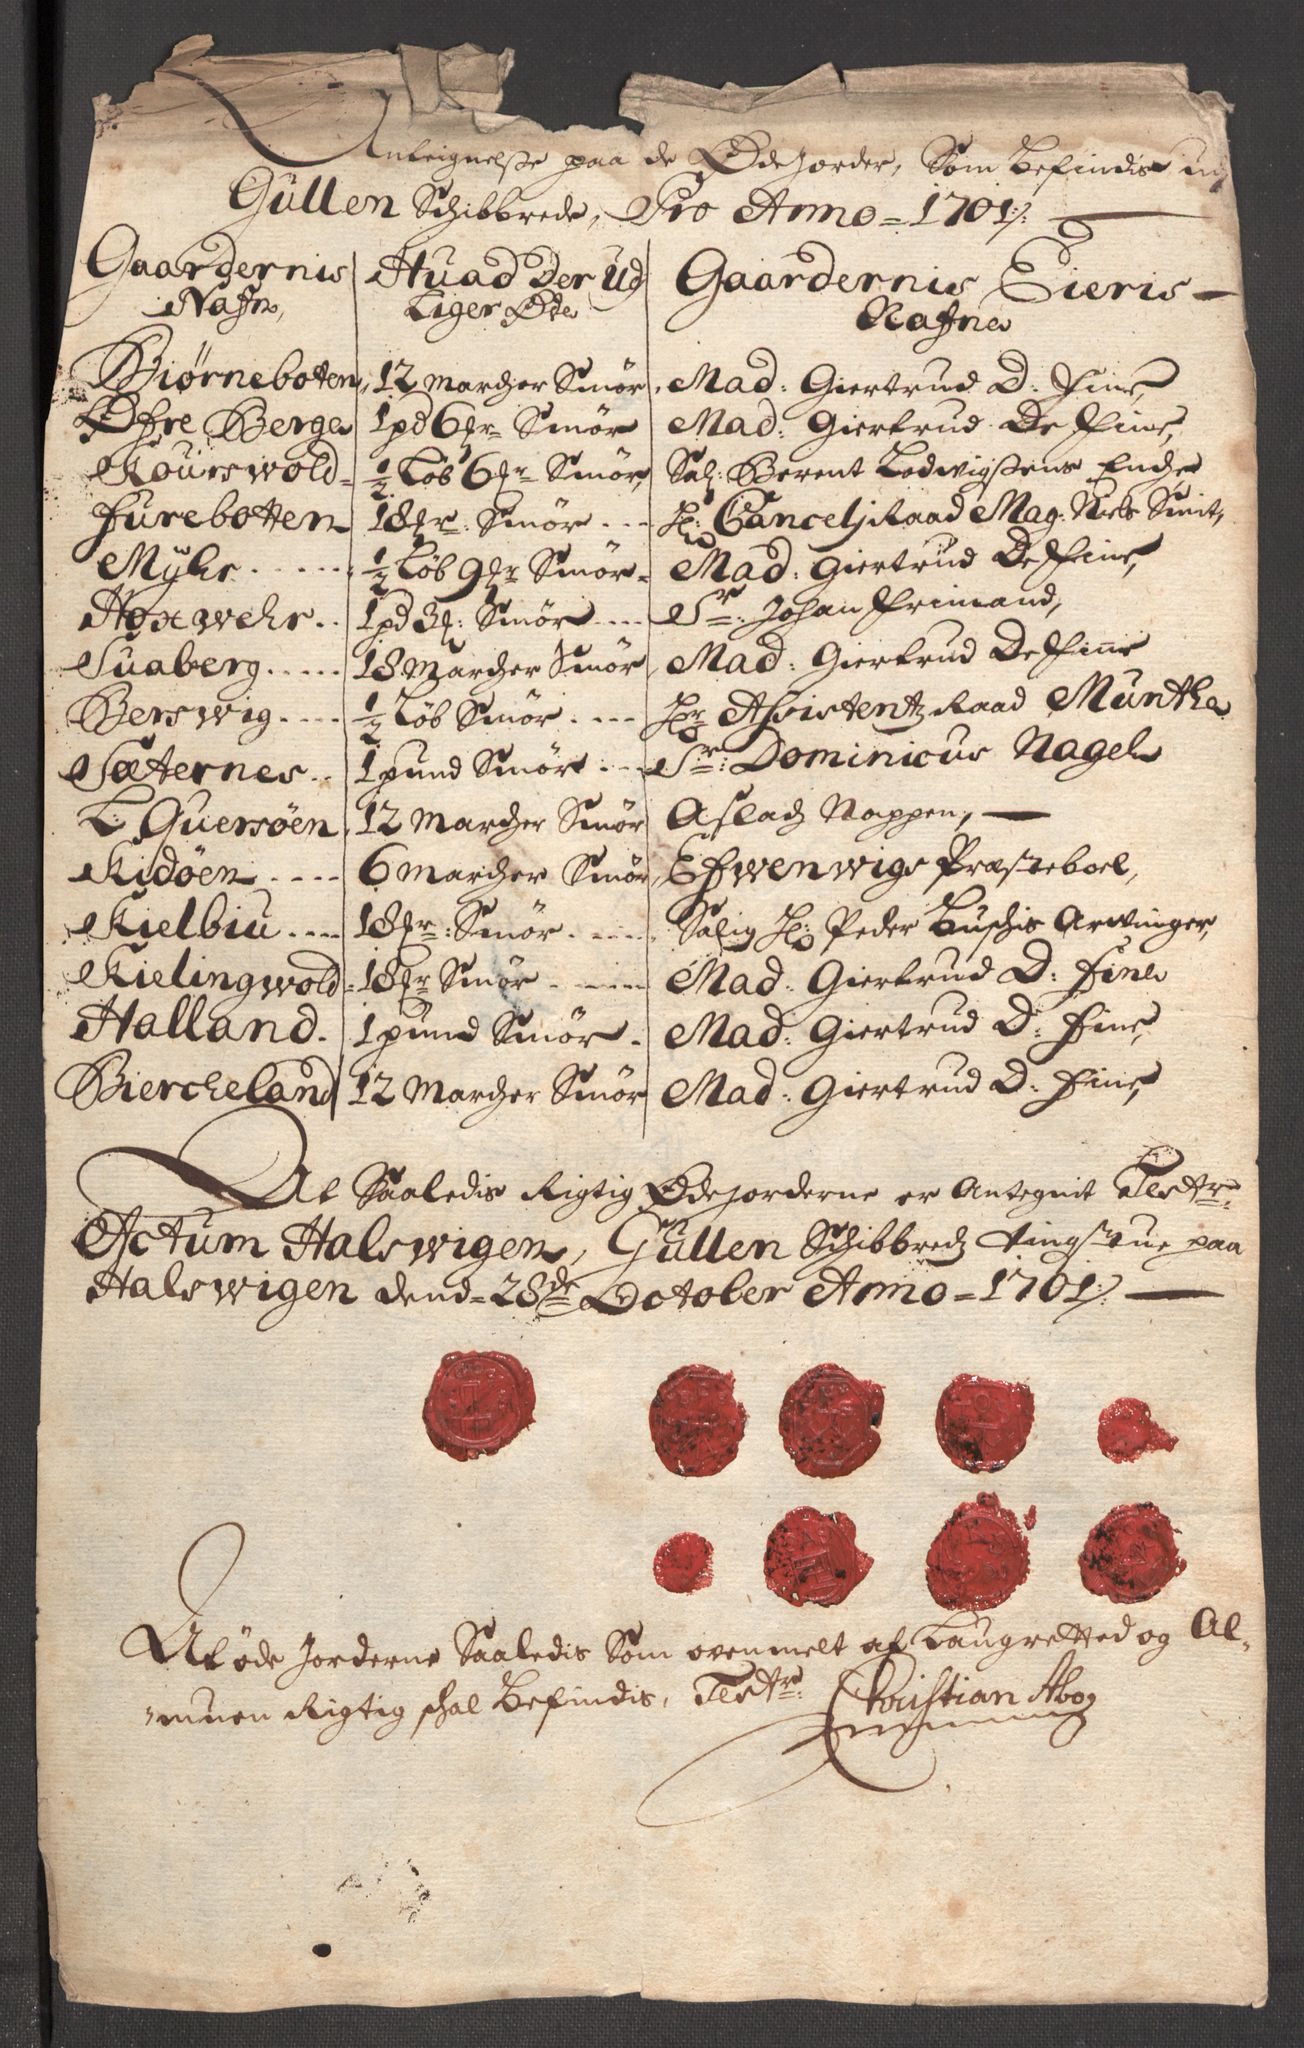 Anteignelsse paa de Øde Jorder, Som befindis udj
Gullen Schibbrede, Pro Anno = 1701:/:
Gaardernis Nafn, Huad Der Ud Liger Øde Gaardernis Eieris Nafne
Biørneboten, 12 marcher Smør, Mad: Giertrud D: Fine,
Øfre Berge 1 pd 6 mr Smør Mad: Giertrud De Fine,
Kourswold = ½ Løb 6 mr Smør, Sal: Berent Lodwigssens Enche
Furebotten 18 mr: Smør --- Hr: Cancelj Raad Mag: Niels Smit,
Myhr ..... ½ Løb 9 mr Smør = Mad: Giertrud De Fine,
Hoxwehr .. 1 pd 3 mr: Smør --- Sr: Johan Frimand,
Suaberg ..... 18 Marcher Smør, Mad: Giertrud De Fine
Berswig .... ½ Løb Smør .... Hr Assistentz Raad Munthe
Sæternes .. 1 pund Smør --- Sr: Dominicus Nagel
L Quersøen, 12 Marcher Smør Aslach Nappen, —
Kidøen .... 6 marcher Smør, Efwenwigs Præsteboel,
Kielbiu .... 18 mr: Smør ..... Salig Hr: Peder Buschis Arwinger,
Kielingwold = 18 mr Smør ..... Mad: Giertrud D: Fine
Halland. 1 pund Smør . Mad: Giertrud D: Fine,
Biercheland 12 Marcher Smør Mad: Giertrud D: Fine,
At Saaledis Rigtig Øde jorderne er Antegnit Test:
Actum Halswigen, Gullen Schibbredz tingstue paa
Halswigen dend = 28de October Anno = 1701:/:
At øde Jorderne Saaledis Som ovenmelt af Laugretted og Al-
muen Rigtig schal befindis, Test: Christian Abo